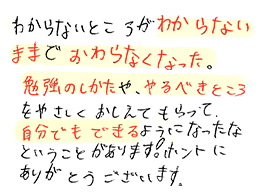 わからないところがわからない
ままで おわらなくなった。
勉強のしかたや、やるべきところ
をやさしく おしえてもらって、
自分でも できるようになったな
ということがあります!ホントに
ありがとうございます。